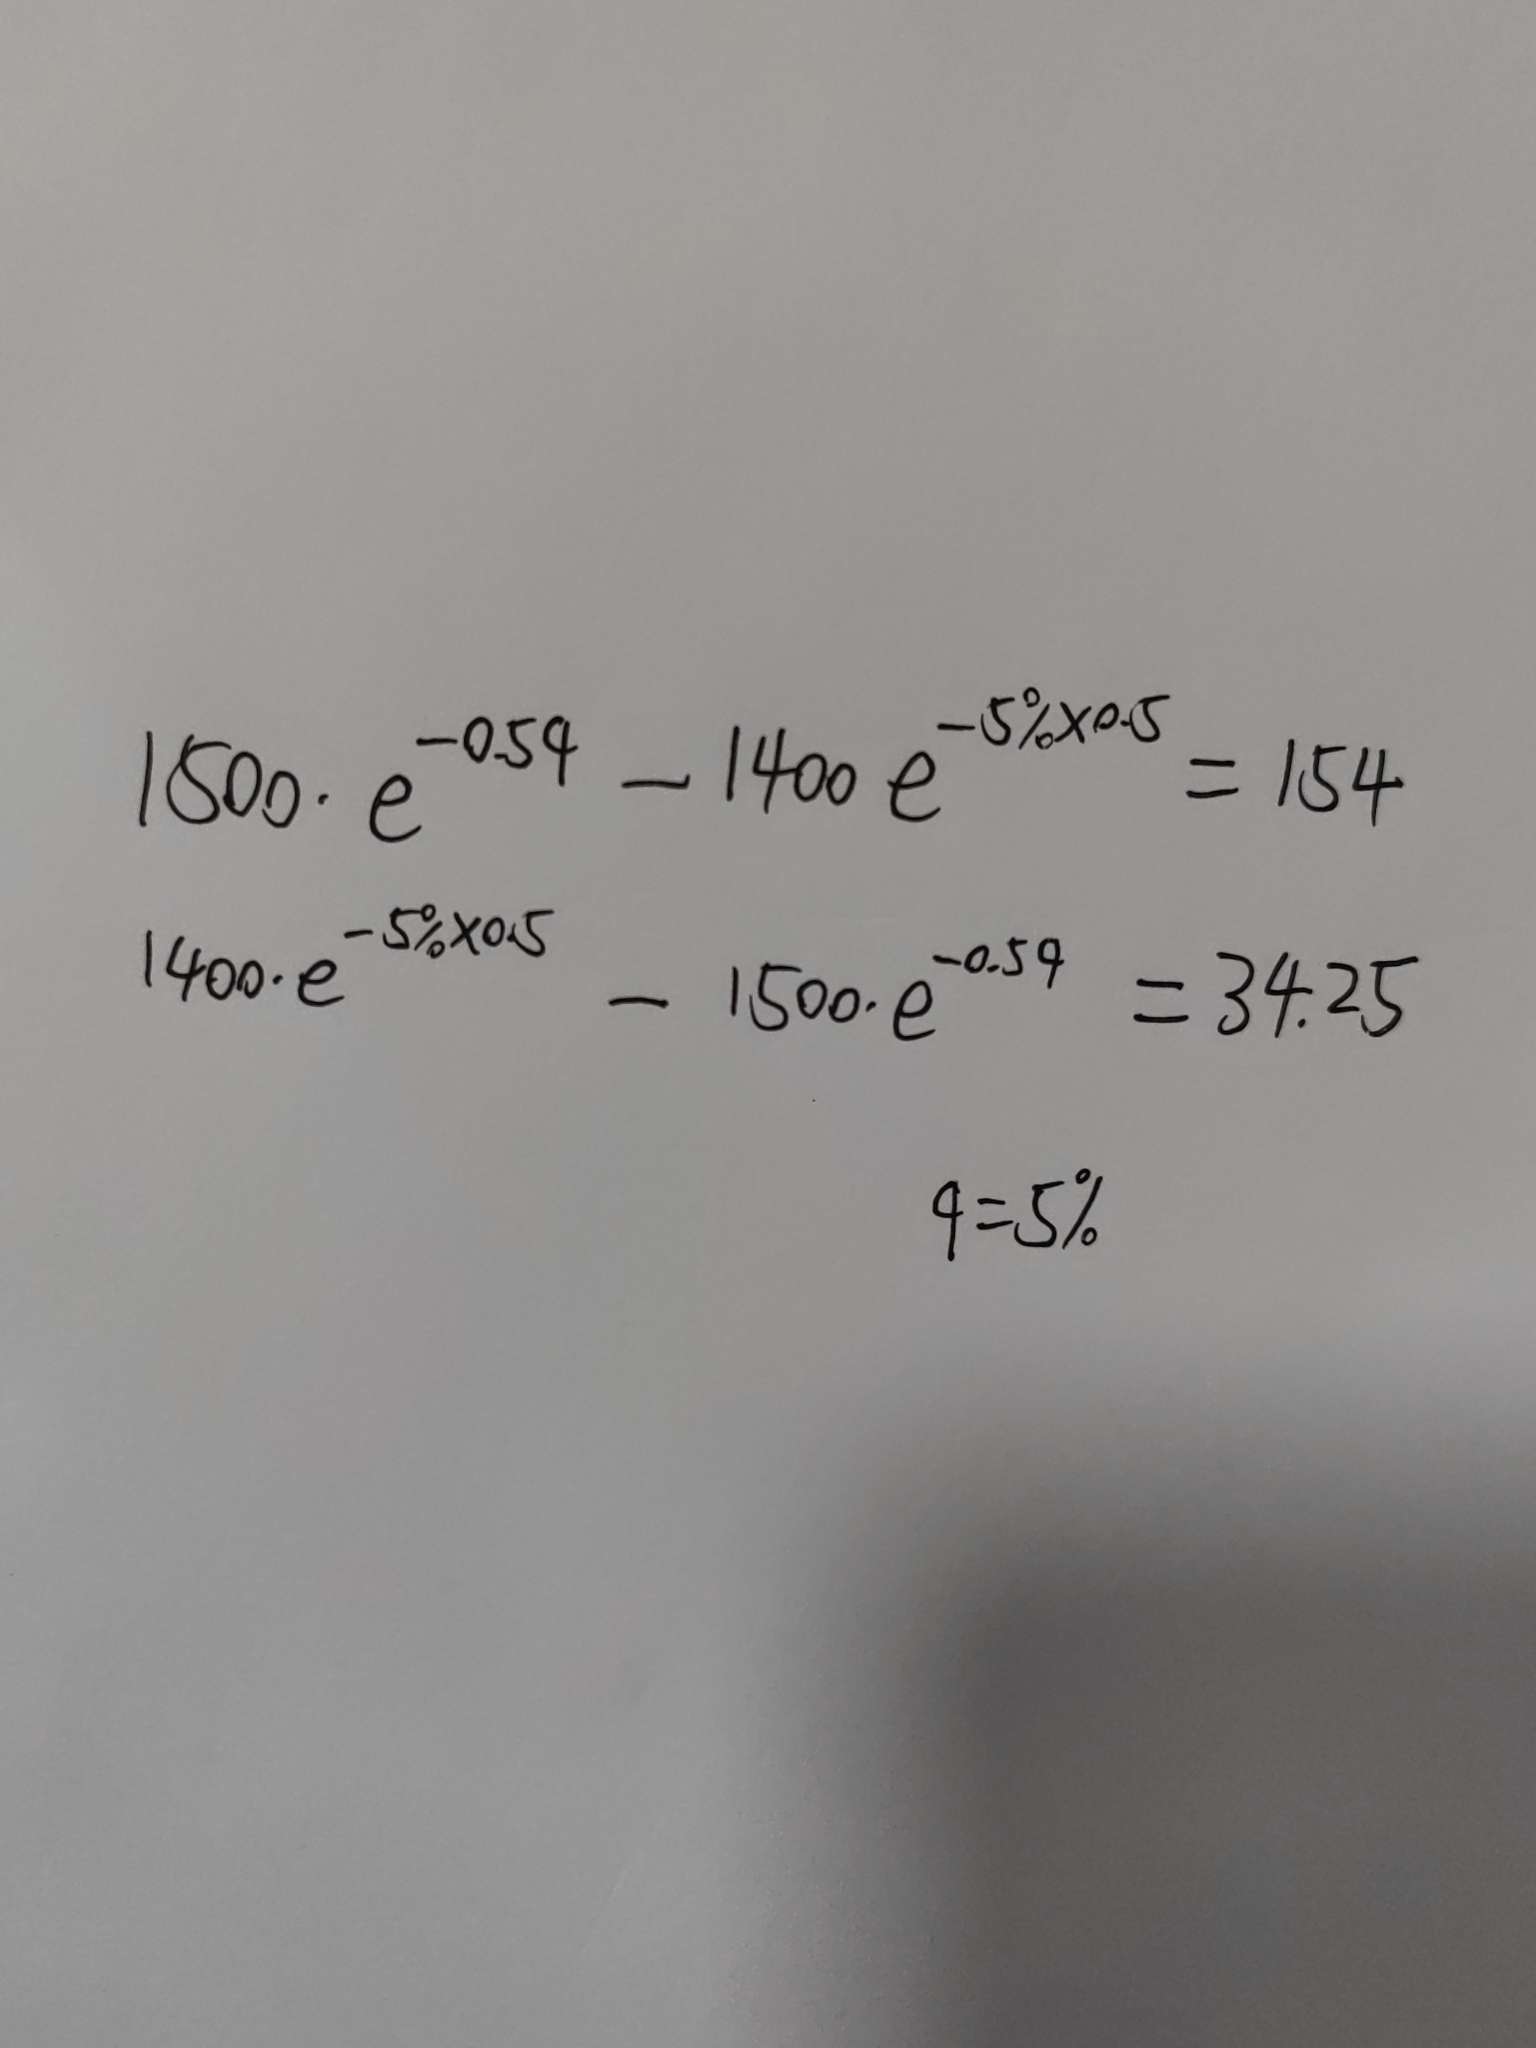 1500·e^-0.5q - 1400 e^-5%×0.5 = 154
1400·e^-5%×0.5 - 1500·e^-0.5q = 34.25
q=5%